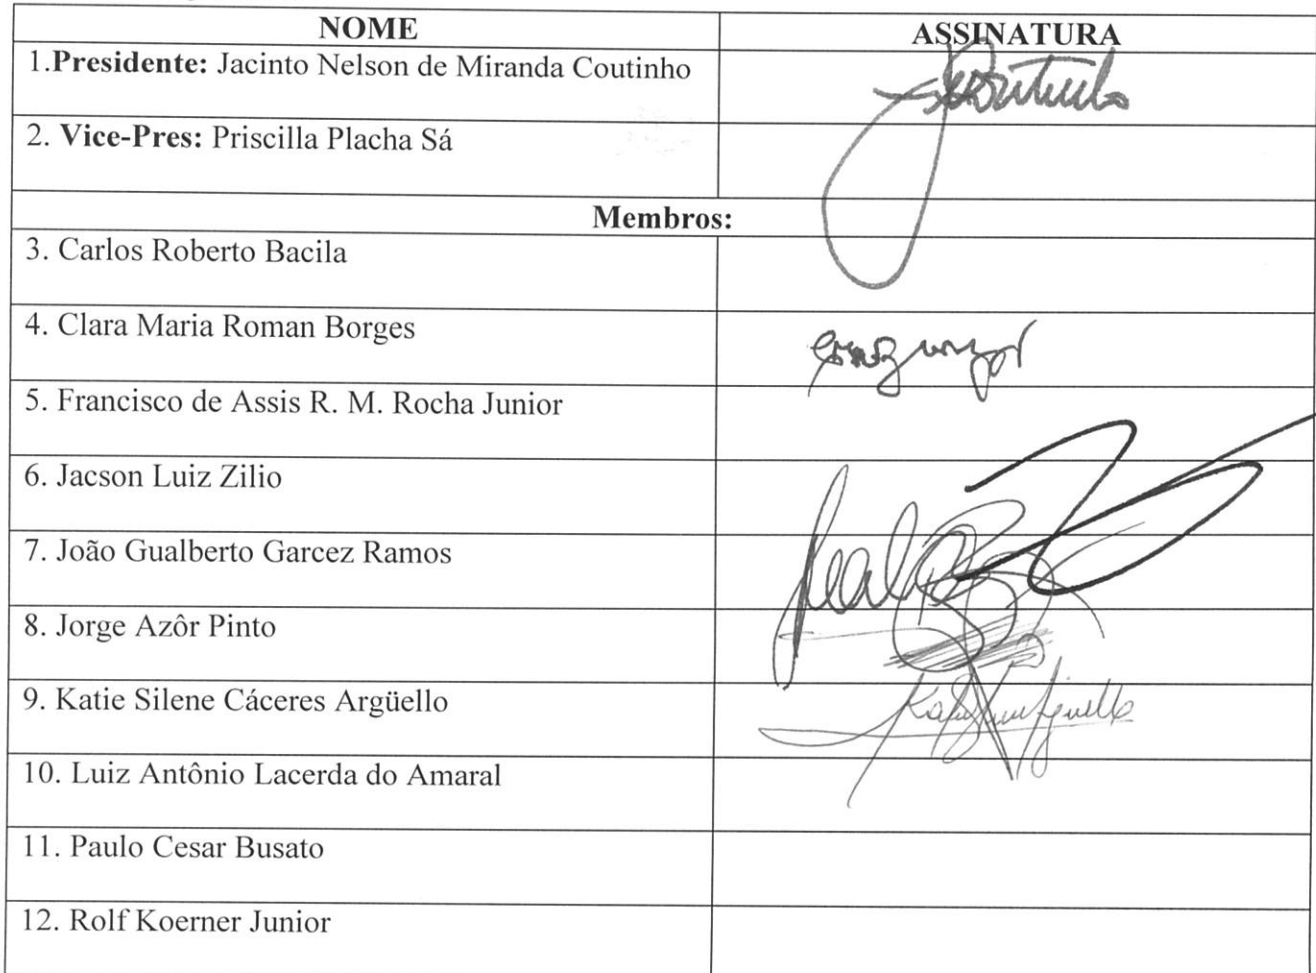 NOME ASSINATURA
1.Presidente: Jacinto Nelson de Miranda Coutinho
2. Vice-Pres: Priscilla Placha Sá
Membros:
3. Carlos Roberto Bacila
4. Clara Maria Roman Borges
5. Francisco de Assis R. M. Rocha Junior
6. Jacson Luiz Zilio
7. João Gualberto Garcez Ramos
8. Jorge Azôr Pinto
9. Katie Silene Cáceres Argüello
10. Luiz Antônio Lacerda do Amaral
11. Paulo Cesar Busato
12. Rolf Koerner Junior